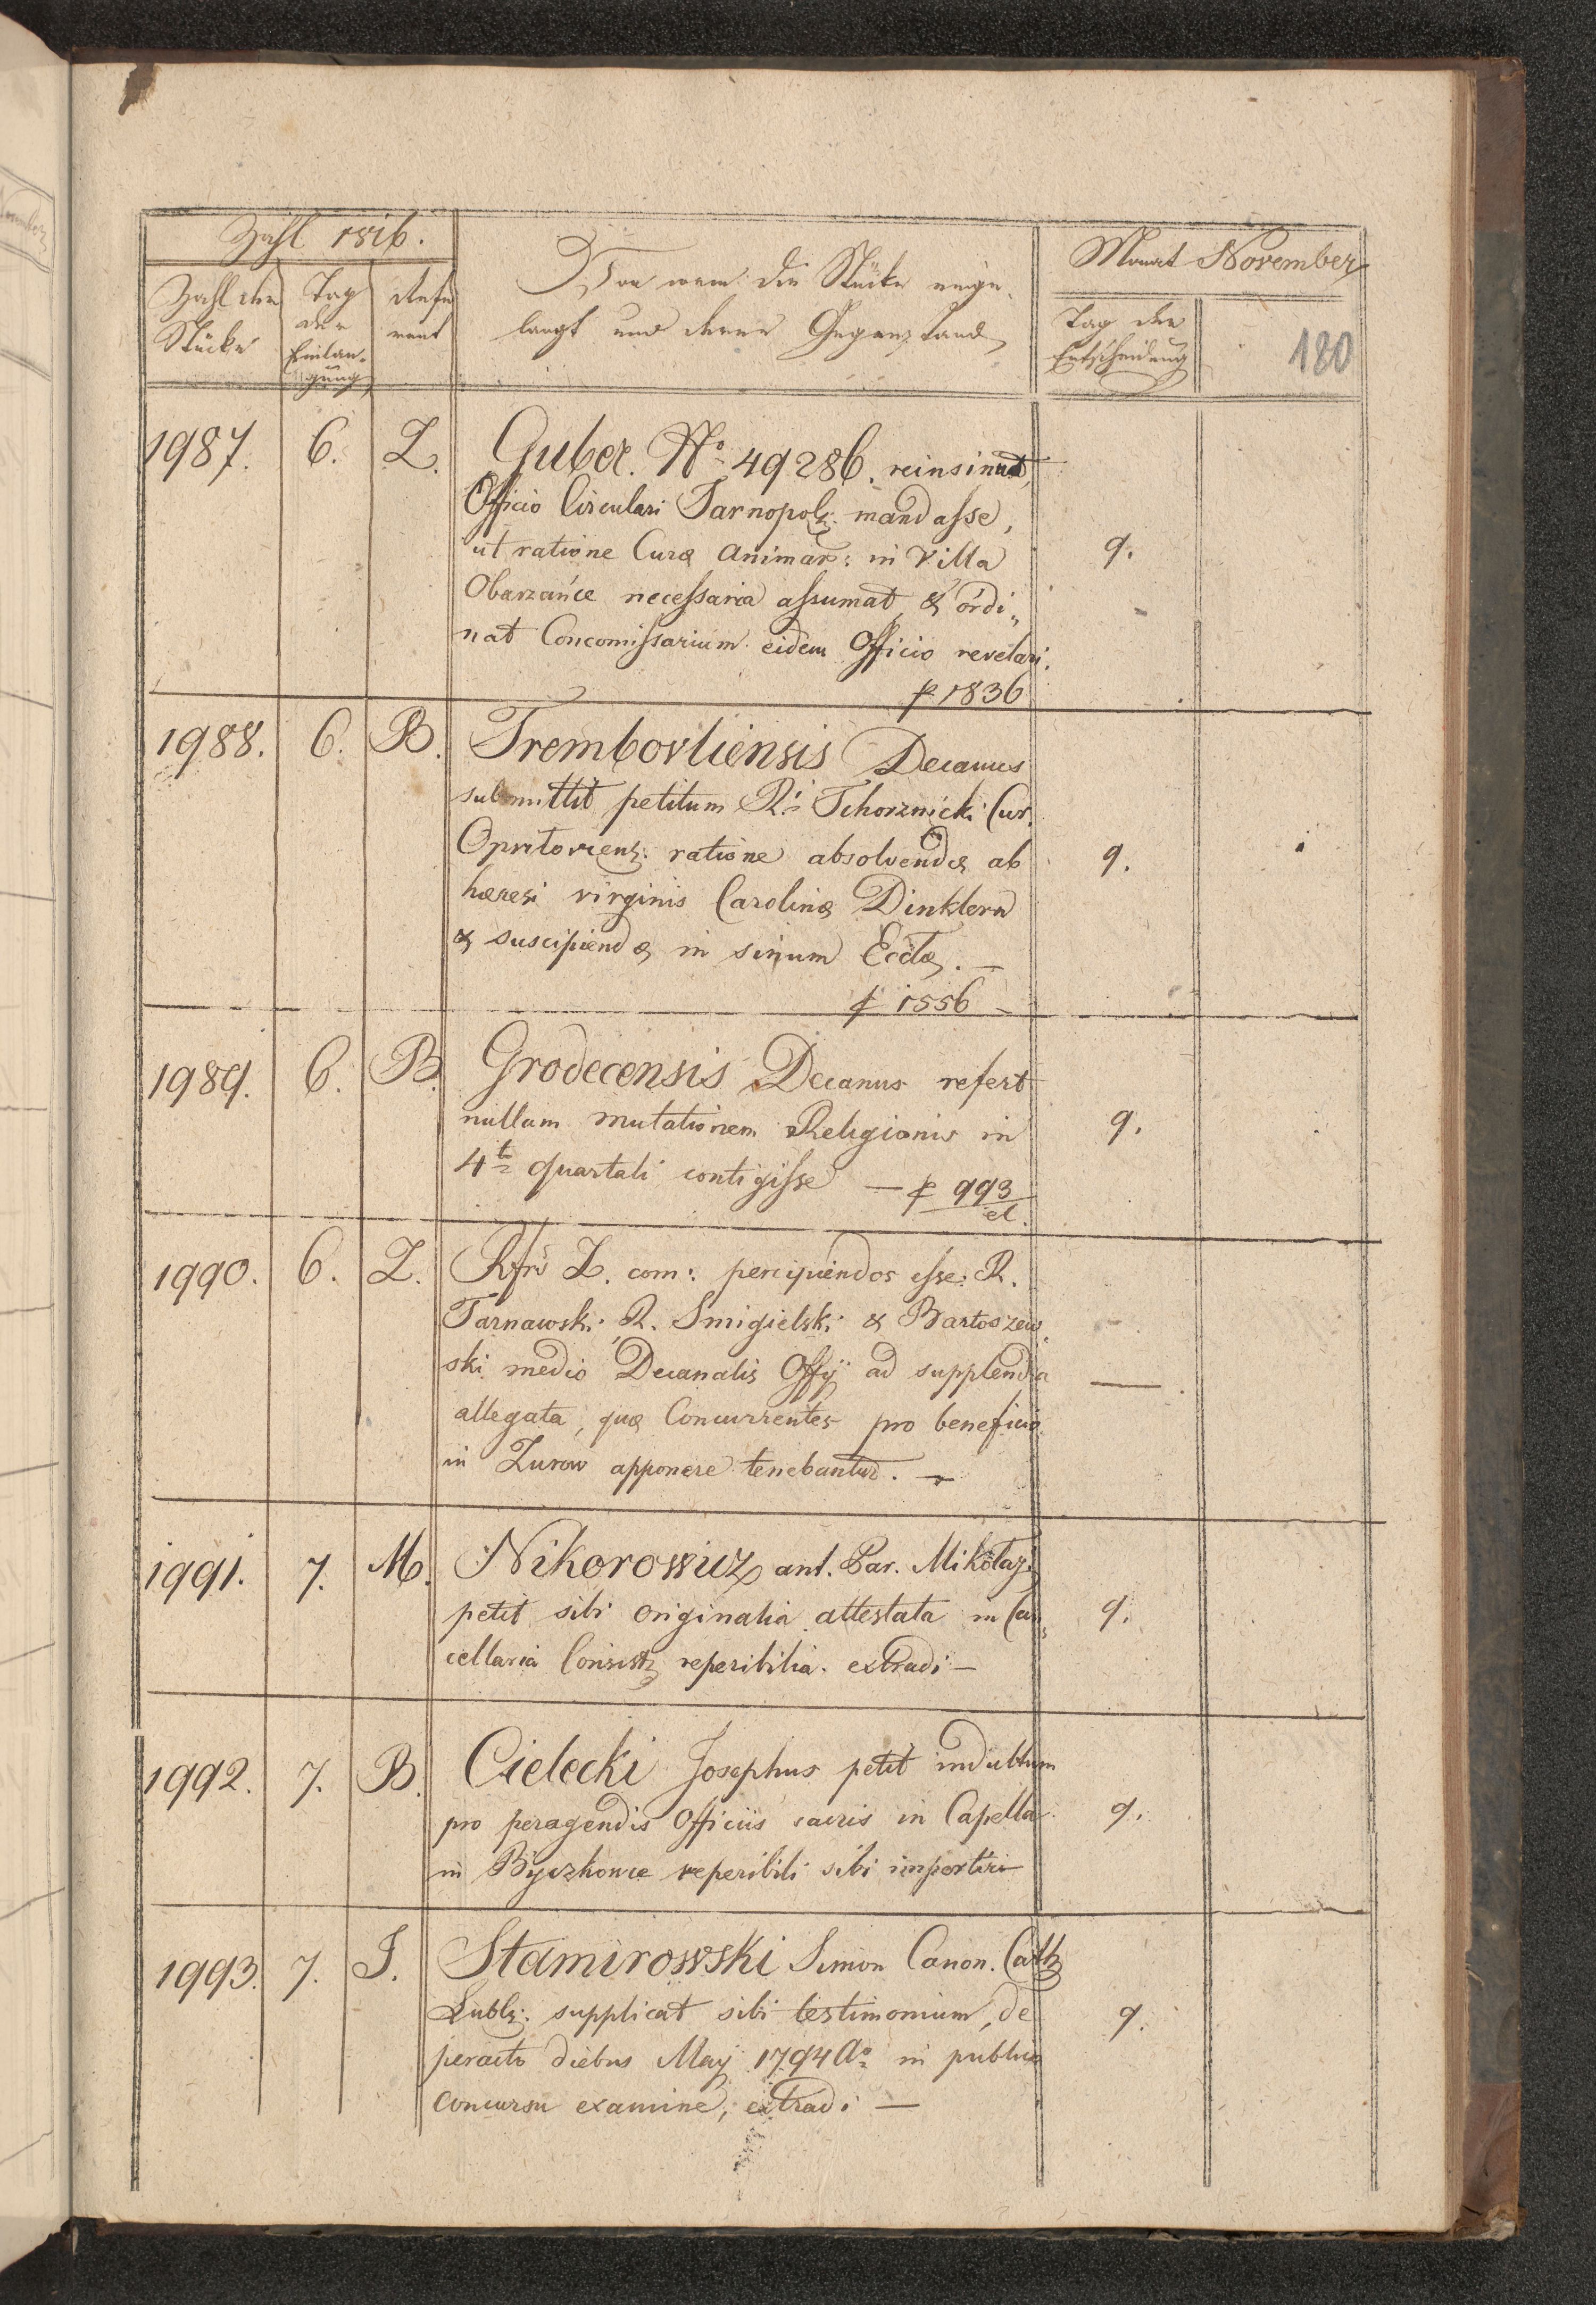 Zahl 1816.
Von wem die Stücke einge-
langt und deren Gegenstand
Monat November
Zahl der
Stücke
Tag
der
Einlan-
gung
Refe
rent
Tag der
Entscheidung
180
1987. 6. Z. Guber. No. 49286. reinsinuat,
Officio Circulari Tarnopolz. mandasse,
ut ratione Curæ animar: in Villa 9.
Obarzańce necessaria assumat & ordi„
nat Concomissarium eidem Officio revelari.
p 1836
1988. 6. B. Trembovliensis Decanus
submittit petitum R.i Tchorznicki Cur.
Opritoviens: ratione absolvendæ ab 9.
hæresi virginis Carolinæ Dinklern
& suscipiendæ in sinum Eccltæ. —
p 1556 —
1989. 6. B. Grodecensis Decanus refert
nullam mutationem Religionis in 9.
4to quartali contigisse — p 993
el.
1990. 6. Z. Rfrs Z. com: percipiendos esse: R.
Tarnawski R. Smigielski & Bartoszew„
ski medio Decanalis Offij ad supplenda —.
allegata, quæ Concurrentes pro beneficio
in Zurow apponere tenebantur. —
1991. 7. M. Nikorowicz ant. Par. Mikołaj:
petit sibi originalia attestata in Can„ 9.
cellaria Consistz reperibilia. extradi —
1992. 7. B. Cielecki Josephus petit indultum
pro peragendis Officiis sacris in Capella 9.
in Byczkowce reperibili sibi impertiri
1993. 7. J. Stamirowski Simon Canon. Cathz
Lublz: supplicat sibi testimonium, de 9.
peracto diebus Maij 1794 Ao in publico
concursu examine, extradi —